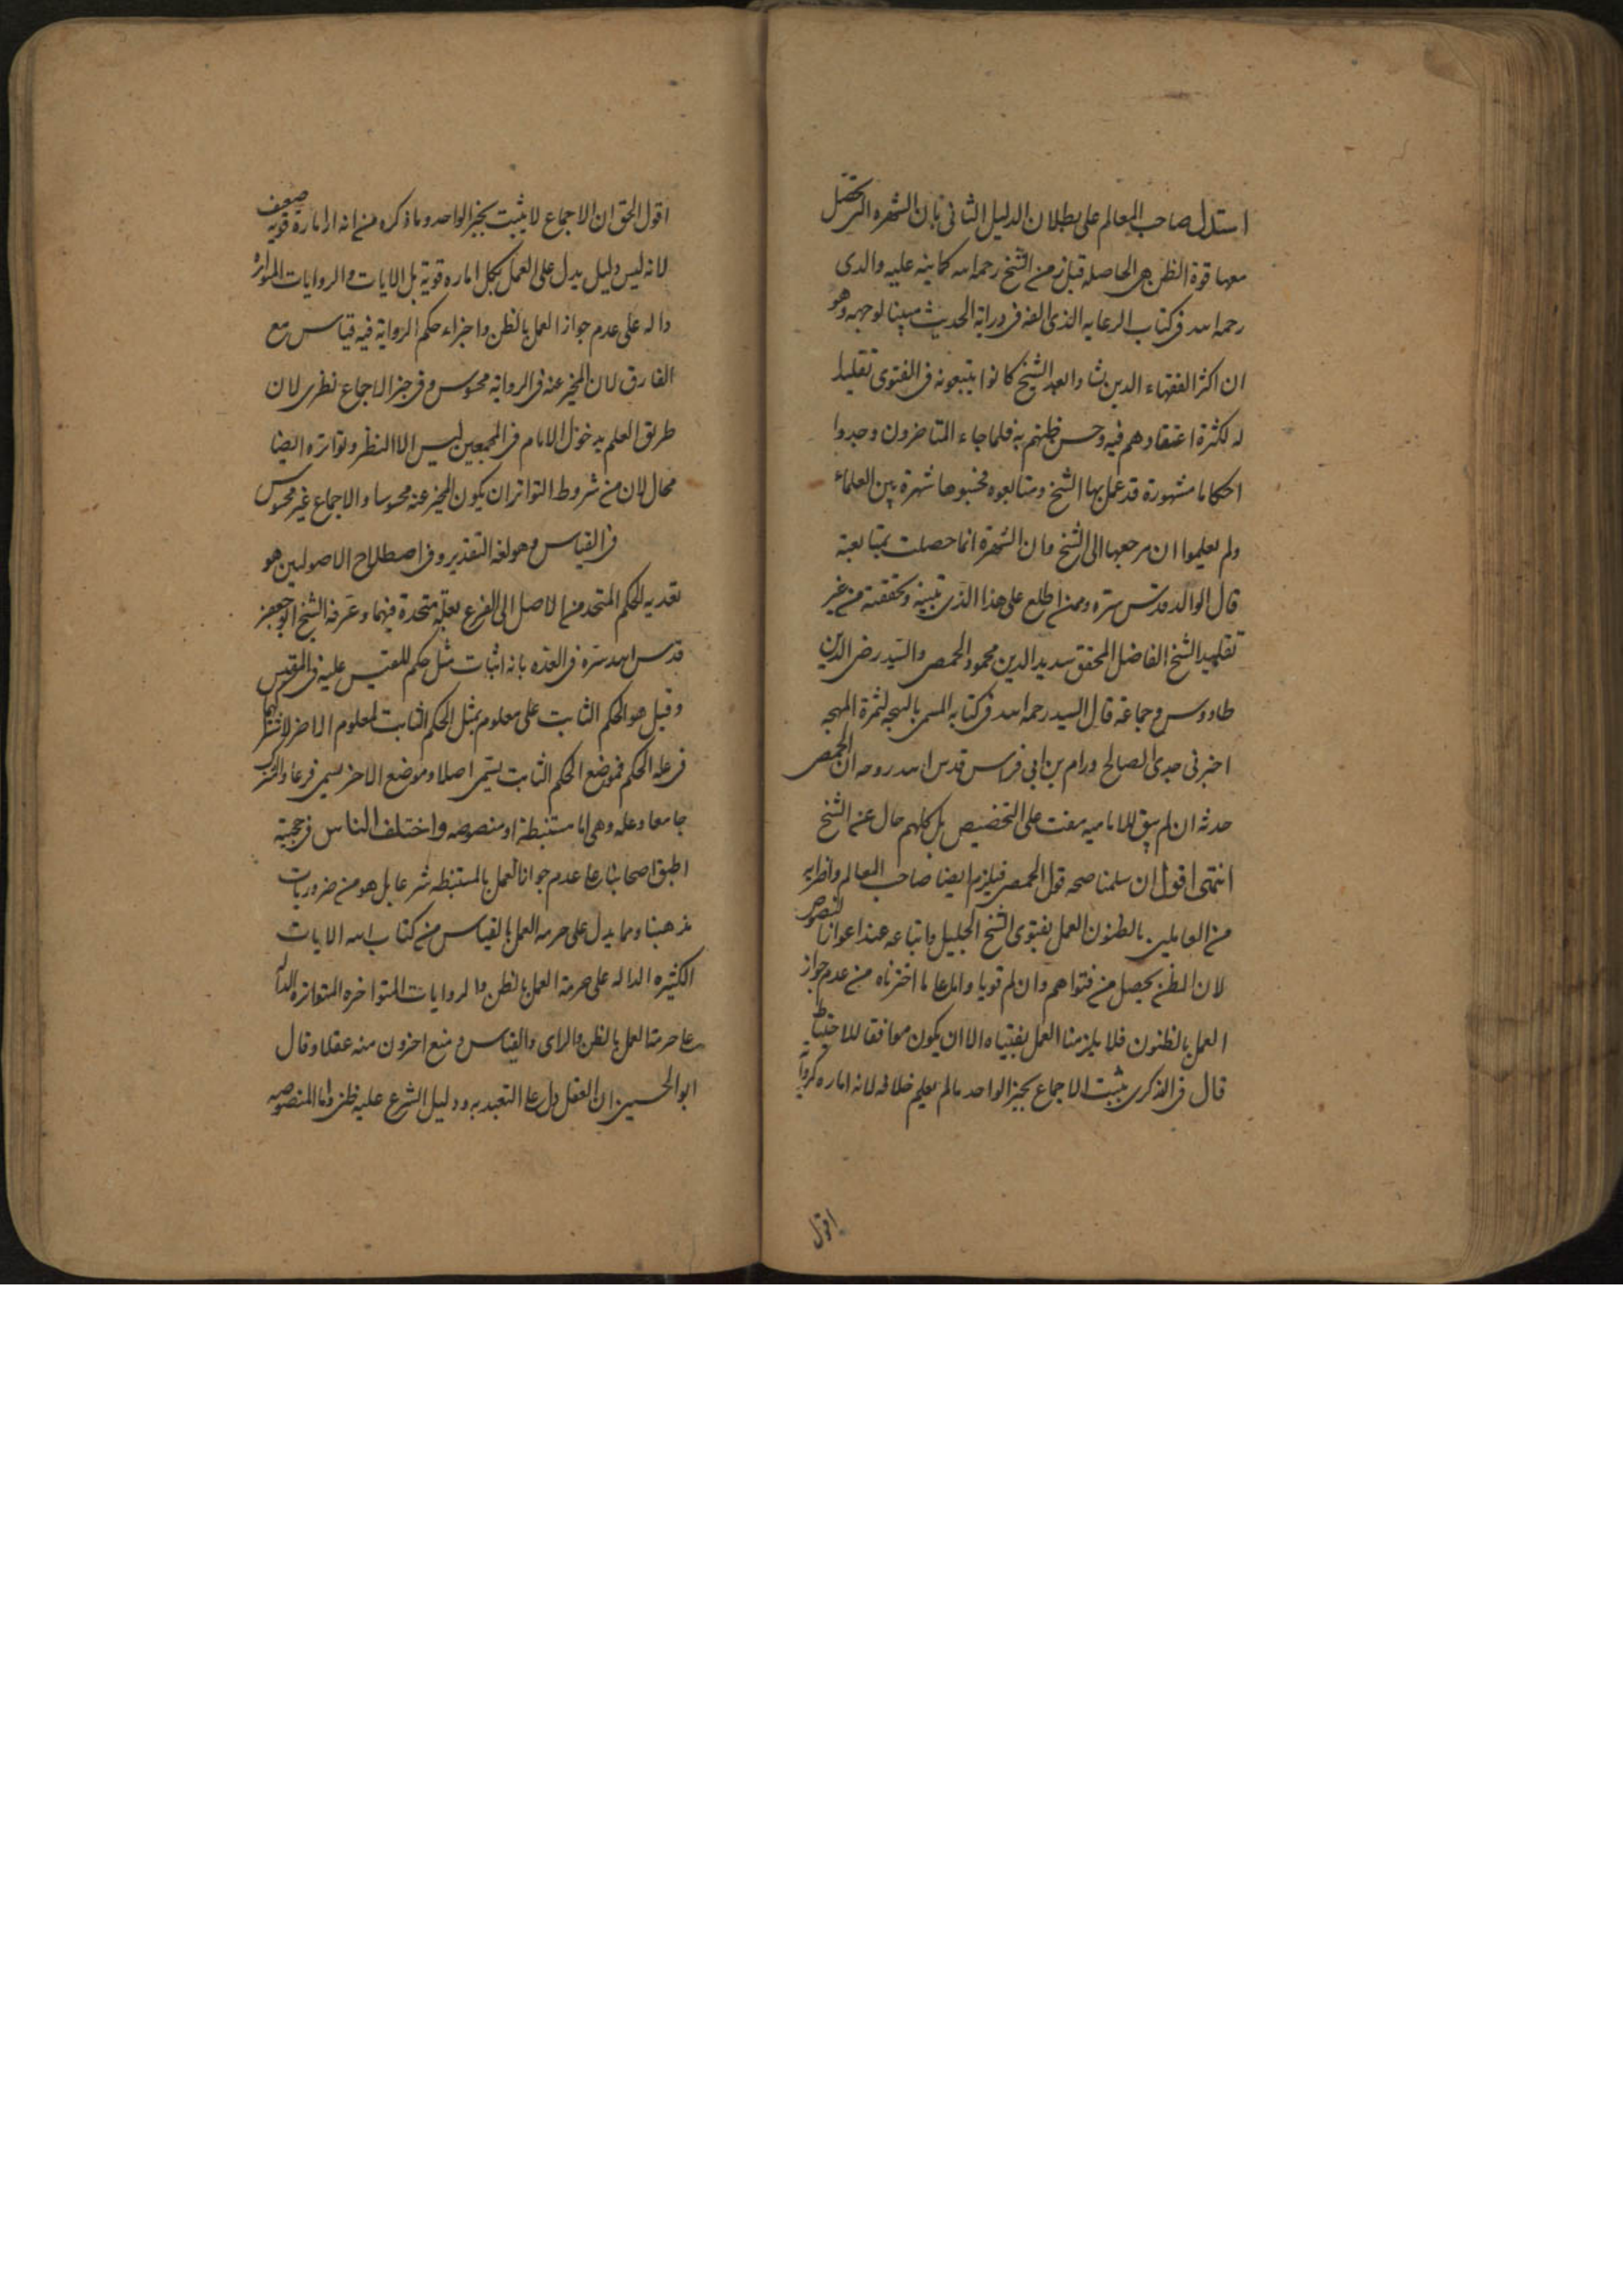 استدل صاحب المعالم على بطلان الدليل الثانى بان الشهره التى تحصل
معها قوة الظن هى الحاصله قبل زمن الشيخ رحمه الله كما بينه عليه والدى
رحمه الله فى كتاب الرعايه الذى الفه فى دراية الحديث مبينا لوجهه وهو
ان اكثر الفقهاء الذين نشاوا بعد الشيخ كانوا يتبعونه فى الفتوى تقليدا
له لكثرة اعتقادهم فيه وحسن ظنهم به فلما جاء المتاخرون وجدوا
احكاما مشهورة قد عمل بها الشيخ ومتابعوه فحسبوها شهرة بين العلماء
ولم يعلموا ان مرجعها الى الشيخ وان الشهرة انما حصلت بمتابعته
قال الوالد قدس سره وممن اطلع على هذا الذى تبينته وتحققته من غير
تقليد الشيخ الفاضل المحقق سديد الدين محمود الحمصى والسيد رضى الدين
طاووس وجماعة قال السيد رحمه الله فى كتابه المسمى بالبهجه لثمرة المهجه
اخبرنى جدى الصالح ورام بن ابى فراس قدس الله روحه ان الحمصى
حدثه ان لم يبق للاماميه مفت على التحقيق بل كلهم حال عن الشيخ
انتهى اقول ان سلمنا صحه قول الحمصى فيلزم ايضا صاحب المعالم واضرابه
من العاملين بالظنون العمل بفتوى الشيخ الجليل واتباعه عند اعواز النصوص
لان الظن يحصل من فتواهم وان لم قويا واما على ما اخترناه من عدم جواز
العمل بالظنون فلا يلزمنا العمل بفتياه الا ان يكون موافقا للاحتياط
قال فى الذكرى يثبت الاجماع بخبر الواحد ما لم يعلم خلافه لانه اماره قوية
اقول
اقول الحق ان الاجماع لا يثبت بخبر الواحد وما ذكره من انه امارة قوية ضعيف
لانه ليس دليل يدل على العمل بكل اماره قوية بل الايات والروايات المتواتره
داله على عدم جواز العمل بالظن واجراء حكم الرواية فيه قياس مع
الفارق لان المخبر عنه فى الرواية محسوس وفى خبر الاجماع نظرى لان
طريق العلم بدخول الامام فى المجمعين ليس الا النظر وتواتره ايضا
محال لان من شروط التواتر ان يكون المخبر عنه محسوسا والاجماع غير محسوس
فى القياس وهو لغة التقدير وفى اصطلاح الاصوليين هو
تعديه الحكم المتحد من الاصل الى الفرع بعلة متحدة فيهما وعرفه الشيخ ابو جعفر
قدس الله سره فى العده بانه اثبات مثل حكم المقيس عليه فى المقيس
وقيل هو الحكم الثابت على معلوم بمثل الحكم الثابت لمعلوم اخر لاشتراكهما
فى علة الحكم فموضع الحكم الثابت يسمى اصلا وموضع الاخر يسمى فرعا والمشترك
جامعا وعله وهى اما مستنبطة او منصوصه واختلف الناس فى حجية
اطبق اصحابنا على عدم جواز العمل بالمستنبطه شرعا بل هو من ضروريات
مذهبنا ومما يدل على حرمه العمل بالقياس من كتاب الله الايات
الكثيره الداله على حرمة العمل بالظن والروايات المتواخره المتواتره الداله
على حرمة العمل بالظن والراى والقياس ومنع اخرون منه عقلا وقال
ابو الحسين ان العقل دل على التعبد به ودليل الشرع عليه ظنى واما المنصوصه